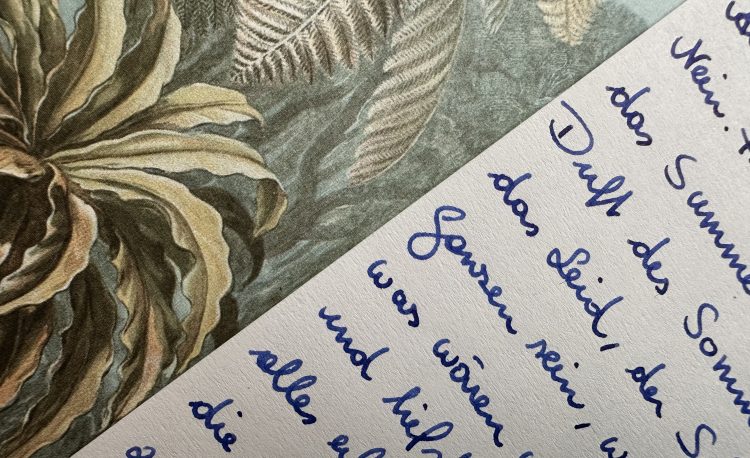 Nein.
das Summe
Duft des Somm
das Leid, der S
Ganzen sein, w
was wären
und tief
alles
die